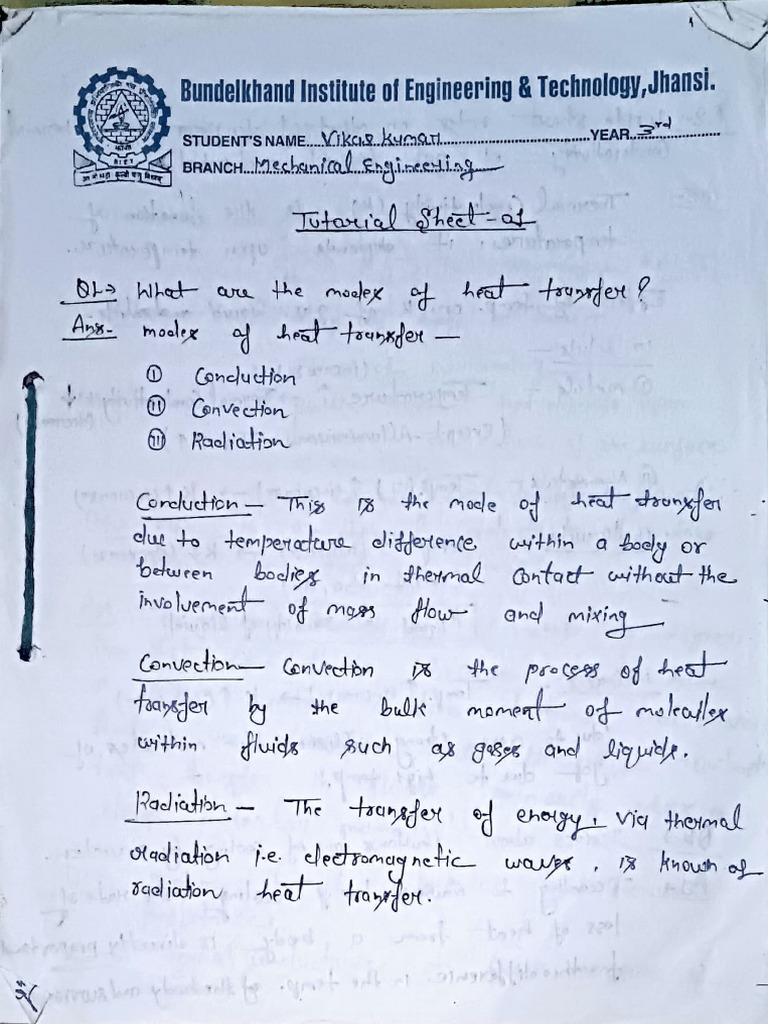 Bundelkhand Institute of Engineering & Technology, Jhansi.
STUDENT'S NAME....Vikas Kumar....YEAR..3rd....
BRANCH...Mechanical Engineering
Tutorial Sheet-01
Q1→ What are the modes of heat transfer?
Ans- modes of heat transfer —
(i) Conduction
(ii) Convection
(iii) Radiation
Conduction - This is the mode of heat transfer
due to temperature difference within a body or
between bodies in thermal contact without the
involvement of mass flow and mixing
Convection - Convection is the process of heat
transfer by the bulk moment of molecules
within fluids such as gases and liquids.
Radiation - The transfer of energy, via thermal
radiation i.e. electromagnetic waves, is known of
radiation heat transfer.